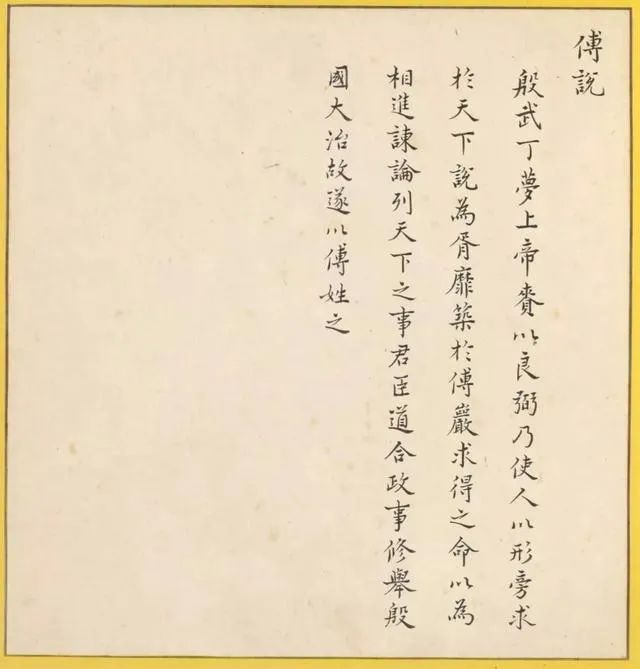 傅說
殷武丁夢上帝賚以良弼乃使人以形旁求
於天下說為胥靡築於傅巖求得之命以為
相進諫論列天下之事君臣道合政事修舉殷
國大治故遂以傅姓之